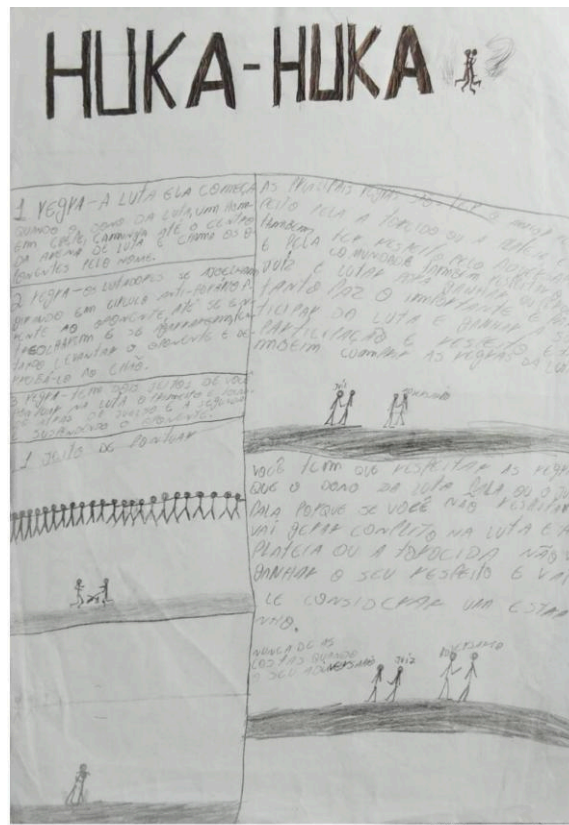 HUKA-HUKA
1 REGRA-A LUTA ELA COMEÇA
QUANDO O DONO DA LUTA, UM HOM
EM CHEFE, CAMINHA ATÉ O CENTRO
DA ARENA DE LUTA E CHAMA OS O
PONENTES PELO NOME.
2 REGRA-OS LUTADORES SE AJOELHAM
GIRANDO EM CIRCULO ANTI-HORARIO F
RENTE AO OPONENTE ATÉ SE
E SE AGARRAREM, TEN
TANDO LEVANTAR O OPONENTE E DE
RRUBÁ-LO NO CHÃO.
REGRA-TEM DOIS JEITOS DE VOCÊ
PONTUAR NA LUTA O PRIMEIRO É
ATRAS DO JOELHO E A SEGUNDA
É SUSPENDENDO O OPONENTE.
1 JEITO DE PONTUAR
AS PRINCIPAIS REGRAS SÃO TER O MAIOR
PEITO PELA A TORCIDA OU A PLATEIA
TAMBEM
E PELA TER RESPEITO PELO ADVERSA
COMUNIDADE TAMBEM RESPEITAR O
JUIZ E LUTAR PARA GANHAR OU
TANTO FAZ O IMPORTANTE É PAR
TICIPAR DA LUTA E GANHAR A SUA
PARTICIPAÇÃO E RESPEITO E TA
MBEM CUMPRIR AS REGRAS DA LUTA
JUÍZ
VOCÊ TEM QUE RESPEITAR AS REGRAS
QUE O DONO DA LUTA FALA OU O
FALA PORQUE SE VOCÊ NÃO RESPEITAR
VAI GERAR CONFLITO NA LUTA E A
PLATEIA OU A TOROCIDA NÃO V
GANHAR O SEU RESPEITO E VAI
LE CONSIDERAR UM ESTRA
NHO.
NUNCA DE AS
COSTAS QUANDO
O SEU ADVERSARIO
JUÍZ
ADVERSARIO